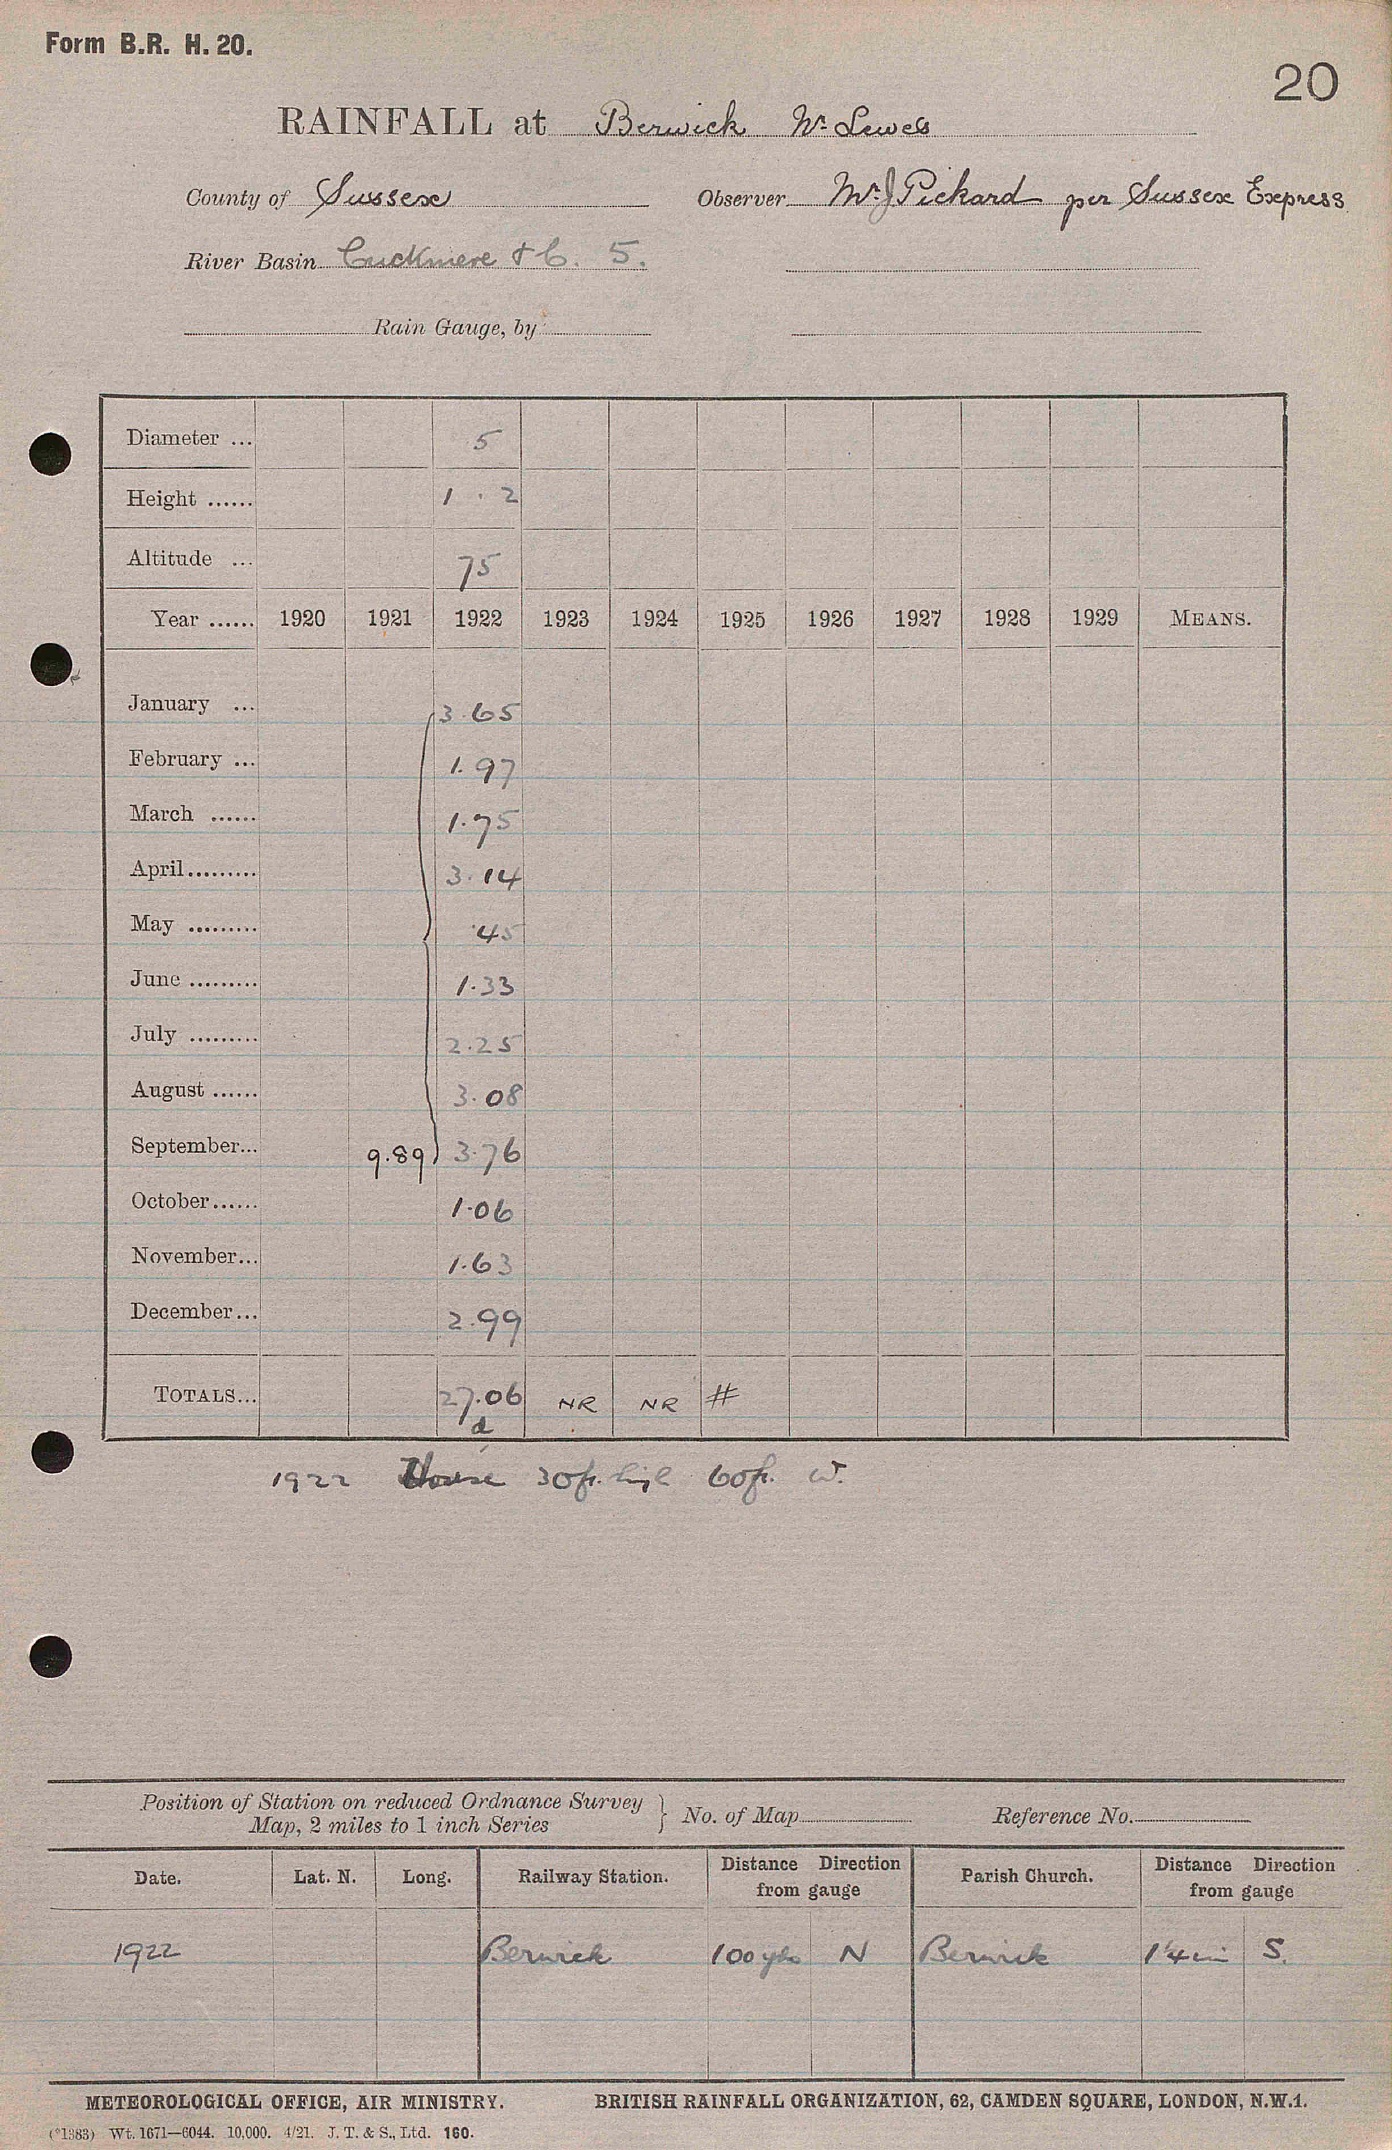 Form B.R. H. 20.
20
RAINFALL at Berwick Nr Lewes
County of Sussex Observer Mr J Pickard per Sussex Express
River Basin Cuckmere &c. 5.
Rain Gauge, by
Diameter ... 5
Height ...... 1 . 2
Altitude ... 75
Year ...... 1920 1921 1922 1923 1924 1925 1926 1927 1928 1929 MEANS.
January ... 3.65
February ... 1.97
March ...... 1.75
April......... 3.14
May ......... .45
June ......... 1.33
July ......... 2.25
August ...... 3.08
September... 9.89 3.76
October...... 1.06
November... 1.63
December... 2.99
TOTALS... 27.06 NR NR #
d
1922 House 30ft. high 60ft. W.
Position of Station on reduced Ordnance Survey
Map, 2 miles to 1 inch Series } No. of Map Reference No.
Date. Lat. N. Long. Railway Station. Distance Direction from gauge Parish Church. Distance Direction from gauge
1922 Berwick 100 yds N Berwick 1¼ m S.
METEOROLOGICAL OFFICE, AIR MINISTRY. BRITISH RAINFALL ORGANIZATION, 62, CAMDEN SQUARE, LONDON, N.W.1.
(*1383) Wt. 1671—6044. 10,000. 4/21. J. T. & S., Ltd. 160.